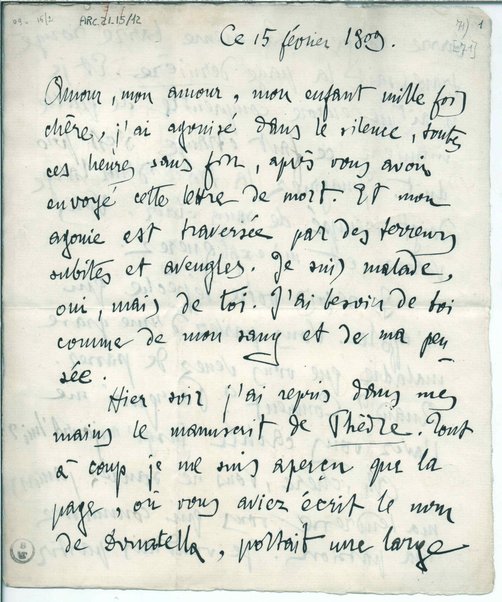 ARC.21.15/12
71) 1
[71]
Ce 15 février 1909.
Amour, mon amour, mon enfant mille fois
chère, j'ai agonisé dans le silence, toutes
ces heures sans fin, après vous avoir
envoyé cette lettre de mort. Et mon
agonie est traversée par des terreurs
subites et aveugles. Je suis malade,
oui, mais de toi. J'ai besoin de toi
comme de mon sang et de ma pen-
sée.
Hier soir j'ai repris dans mes
mains le manuscrit de Phèdre. Tout
à coup je me suis aperçu que la
page, où vous aviez écrit le nom
de Donatella, portait une large